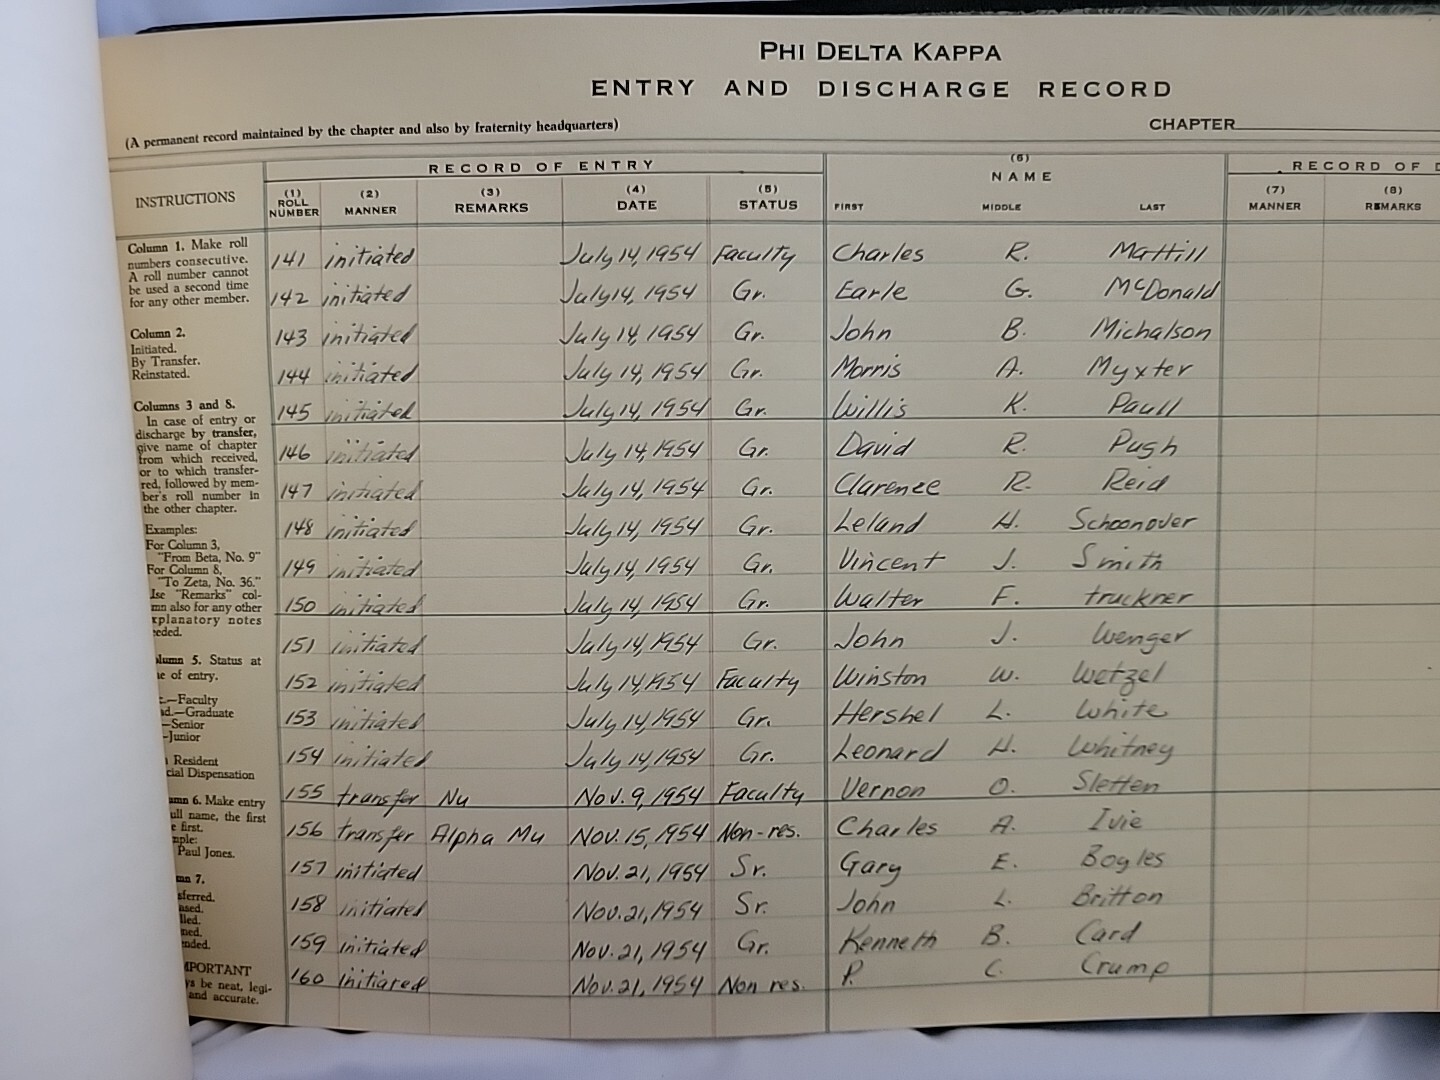 PHI DELTA KAPPA
ENTRY AND DISCHARGE RECORD
(A permanent record maintained by the chapter and also by fraternity headquarters)
CHAPTER
RECORD OF ENTRY
(6)
NAME
RECORD OF
INSTRUCTIONS
(1) ROLL NUMBER
(2) MANNER
(3) REMARKS
(4) DATE
(5) STATUS
FIRST MIDDLE LAST
(7) MANNER
(8) REMARKS
Column 1. Make roll
numbers consecutive.
A roll number cannot
be used a second time
for any other member.
Column 2.
Initiated.
By Transfer.
Reinstated.
Columns 3 and 8.
In case of entry or
discharge by transfer,
give name of chapter
from which received,
or to which transfer-
red, followed by mem-
ber's roll number in
the other chapter.
Examples:
For Column 3,
"From Beta, No. 9"
For Column 8,
"To Zeta, No. 36."
"Remarks" col-
also for any other
notes
5. Status at
of entry.
—Faculty
—Graduate
—Senior
—Junior
Resident
Dispensation
6. Make entry
name, the first
first.
Paul Jones.
7.
be neat, legi-
and accurate.
141 initiated July 14, 1954 Faculty Charles R. Mattill
142 initiated July 14, 1954 Gr. Earle G. McDonald
143 initiated July 14, 1954 Gr. John B. Michalson
144 initiated July 14, 1954 Gr. Morris A. Myxter
145 initiated July 14, 1954 Gr. Willis K. Paull
146 initiated July 14, 1954 Gr. David R. Pugh
147 initiated July 14, 1954 Gr. Clarence R. Reid
148 initiated July 14, 1954 Gr. Leland H. Schoonover
149 initiated July 14, 1954 Gr. Vincent J. Smith
150 initiated July 14, 1954 Gr. Walter F. truckner
151 initiated July 14, 1954 Gr. John J. Wenger
152 initiated July 14, 1954 Faculty Winston W. Wetzel
153 initiated July 14, 1954 Gr. Hershel L. White
154 initiated July 14, 1954 Gr. Leonard H. Whitney
155 transfer Nu Nov. 9, 1954 Faculty Vernon O. Sletten
156 transfer Alpha Mu Nov. 15, 1954 Non-res. Charles A. Ivie
157 initiated Nov. 21, 1954 Sr. Gary E. Bogles
158 initiated Nov. 21, 1954 Sr. John L. Britton
159 initiated Nov. 21, 1954 Gr. Kenneth B. Card
160 initiated Nov. 21, 1954 Non res. P. C. Crump